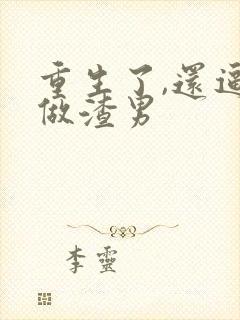 重生了,還逼
做渣男
李靈